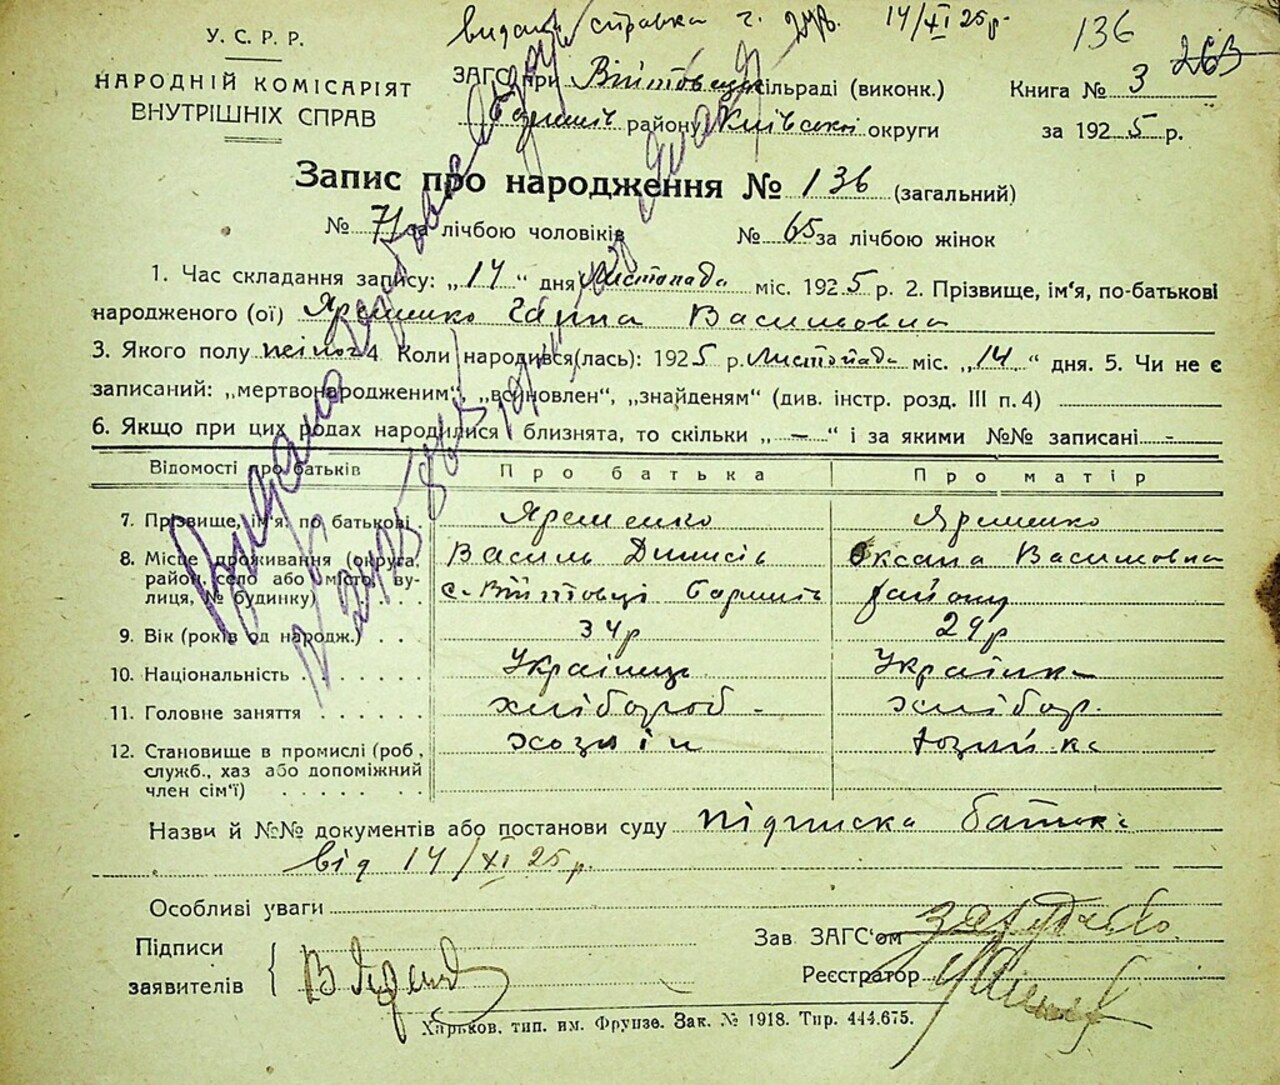 видана справка ч. 14/XI 25р. 136 263
У. С. Р. Р.
НАРОДНІЙ КОМІСАРІЯТ
ВНУТРІШНІХ СПРАВ
ЗАГС при Війтовецькі сільраді (виконк.)
Баришів району Київської округи
Книга № 3
за 1925 р.
Запис про народження № 136 (загальний)
№ 71 за лічбою чоловіків № 65 за лічбою жінок
1. Час складання запису: „14“ дня Листопада міс. 1925 р. 2. Прізвище, ім‘я, по-батькові
народженого (ої) Яременко Ганна Василовна
3. Якого полу жіноч 4 Коли народився(лась): 1925 р. Листопада міс. „14“ дня. 5. Чи не є
записаний: „мертвонародженим“, „всиновлен“, „знайденям“ (див. інстр. розд. III п. 4)
6. Якщо при цих родах народилися близнята, то скільки „ — “ і за якими №№ записані -
Відомості про батьків Про батька Про матір
7. Прізвище, ім‘я, по батькові. Яременко Яременко
8. Місце проживання (округа, Василь Денисів Оксана Василовна
район, село або місто, ву-
лиця, № будинку) с. Війтовці Баришів району
9. Вік (років од народж.) 34р 29р
10. Національність Українець Українка
11. Головне заняття хлібороб - хлібор.
12. Становище в промислі (роб., хозяін хозяйка
служб., хаз або допоміжний
член сім‘ї)
Назви й №№ документів або постанови суду підписка батька
від 14/XI 25р.
Особливі уваги
Підписи
заявителів
Зав ЗАГС‘ом
Реєстратор
Харьков, тип. им. Фрунзе. Зак. № 1918. Тир. 444.675.
Видано